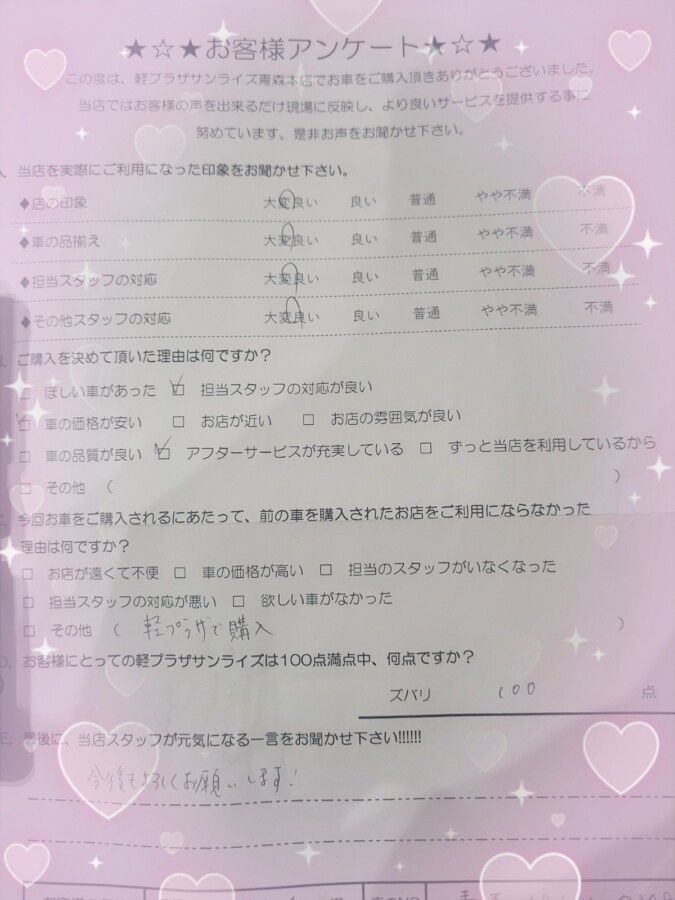 ★☆★お客様アンケート★☆★
この度は、軽プラザサンライズ青森本店でお車をご購入頂きありがとうございました。
当店ではお客様の声を出来るだけ現場に反映し、より良いサービスを提供する事に
努めています。是非お声をお聞かせ下さい。
当店を実際にご利用になった印象をお聞かせ下さい。
◆店の印象 大変良い 良い 普通 やや不満 不満
◆車の品揃え 大変良い 良い 普通 やや不満 不満
◆担当スタッフの対応 大変良い 良い 普通 やや不満 不満
◆その他スタッフの対応 大変良い 良い 普通 やや不満 不満
ご購入を決めて頂いた理由は何ですか？
□ ほしい車があった ☑ 担当スタッフの対応が良い
☑ 車の価格が安い □ お店が近い □ お店の雰囲気が良い
□ 車の品質が良い ☑ アフターサービスが充実している □ ずっと当店を利用しているから
□ その他 （ ）
今回お車をご購入されるにあたって、前の車を購入されたお店をご利用にならなかった
理由は何ですか？
□ お店が遠くて不便 □ 車の価格が高い □ 担当のスタッフがいなくなった
□ 担当スタッフの対応が悪い □ 欲しい車がなかった
□ その他 （ 軽プラザで購入 ）
D. お客様にとっての軽プラザサンライズは100点満点中、何点ですか？
ズバリ 100 点
E. 最後に、当店スタッフが元気になる一言をお聞かせ下さい!!!!!!
今後もよろしくお願いします!